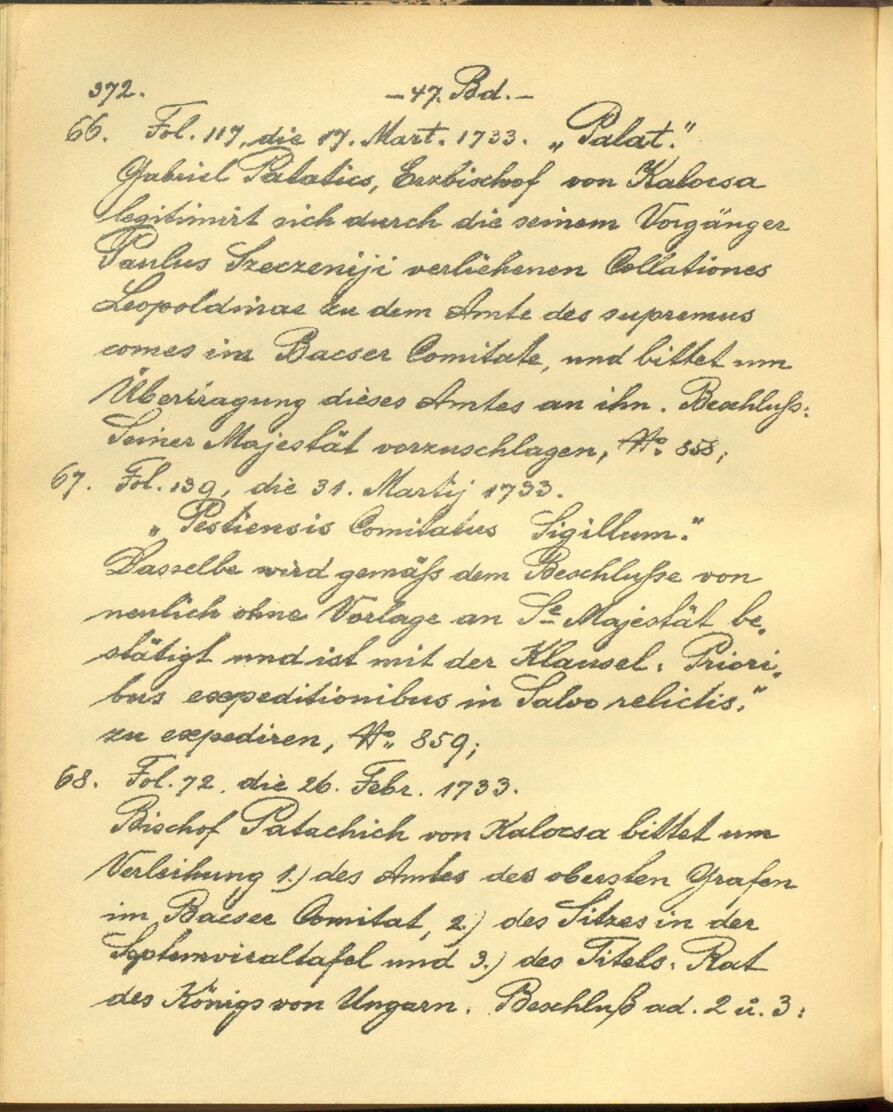 372. –47. Bd.–
66. Fol. 117, die 17. Mart. 1733. „Palat.“
Gabriel Patatics, Erzbischof von Kalocsa
legitimirt sich durch die seinem Vorgänger
Paulus Szeczeniji verliehenen Collationes
Leopoldinae zu dem Amte des supremus
comes im Bacser Comitate, und bittet um
Übertragung dieses Amtes an ihn. Beschluß:
Seiner Majestät vorzuschlagen, No. 858;
67. Fol. 139, die 31. Martij 1733.
„Pestiensis Comitatus Sigillum.“
Dasselbe wird gemäß dem Beschluße von
neulich ohne Vorlage an Se Majestät be„
stätigt und ist mit der Klausel: Priori„
bus expeditionibus in Salvo relictis.“
zu expediren, No. 859;
68. Fol. 72, die 26. Febr. 1733.
Bischof Patachich von Kalocsa bittet um
Verleihung 1.) des Amtes des obersten Grafen
im Bacser Comitat, 2.) des Sitzes in der
Septemviraltafel und 3.) des Titels: Rat
des Königs von Ungarn. Beschluß ad. 2 u. 3: